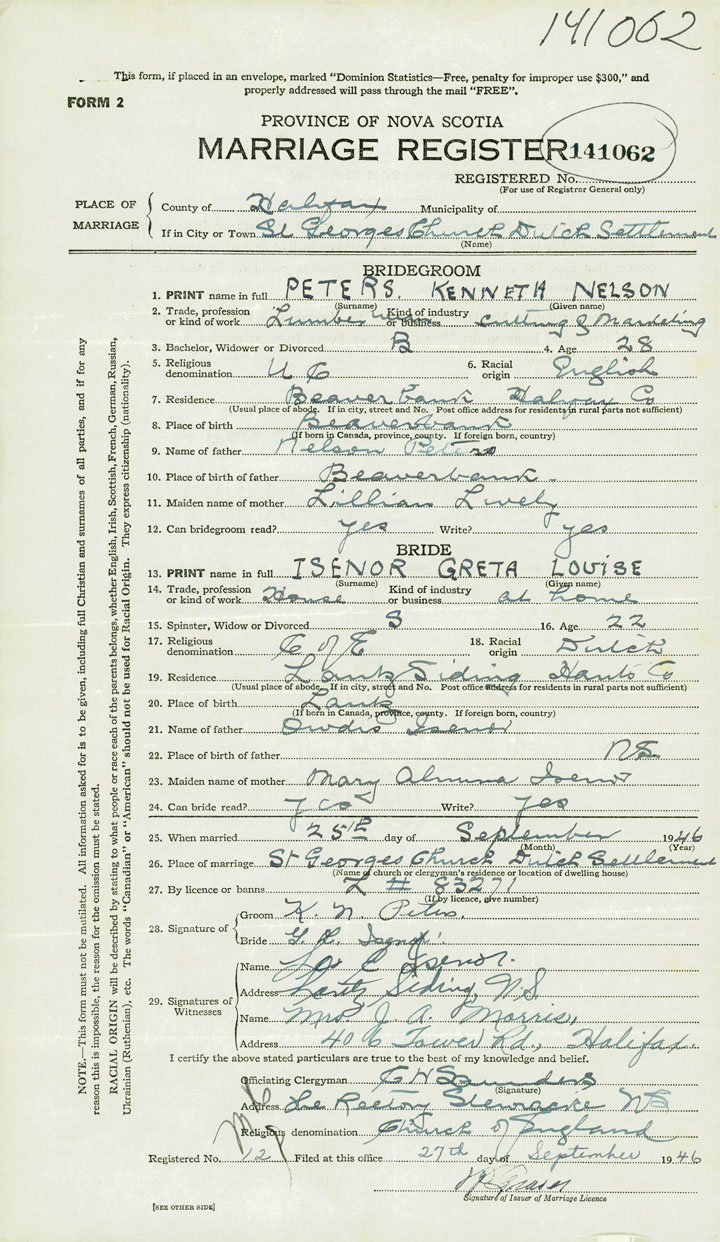 141062
This form, if placed in an envelope, marked "Dominion Statistics—Free, penalty for improper use $300," and
properly addressed will pass through the mail "FREE".
FORM 2
PROVINCE OF NOVA SCOTIA
MARRIAGE REGISTER 141062
REGISTERED No.
(For use of Registrar General only)
PLACE OF MARRIAGE
County of Halifax Municipality of
If in City or Town St Georges Church Dutch Settlement
(Name)
BRIDEGROOM
1. PRINT name in full PETERS, KENNETH NELSON
(Surname) (Given name)
2. Trade, profession or kind of work Kind of industry or business Cutting & Marketing
3. Bachelor, Widower or Divorced B 4. Age 28
5. Religious denomination U C 6. Racial origin English
7. Residence Beaver bank Halifax Co
(Usual place of abode. If in city, street and No. Post office address for residents in rural parts not sufficient)
8. Place of birth Beaverbank
(If born in Canada, province, county. If foreign born, country)
9. Name of father Nelson Peters
10. Place of birth of father Beaverbank
11. Maiden name of mother Lillian Lively
12. Can bridegroom read? yes Write? yes
BRIDE
13. PRINT name in full ISENOR GRETA LOUISE
(Surname) (Given name)
14. Trade, profession or kind of work House Kind of industry or business at home
15. Spinster, Widow or Divorced S 16. Age 22
17. Religious denomination C of E 18. Racial origin Dutch
19. Residence Lantz Siding Hants Co
(Usual place of abode. If in city, street and No. Post office address for residents in rural parts not sufficient)
20. Place of birth Lantz
(If born in Canada, province, county. If foreign born, country)
21. Name of father Isenor
22. Place of birth of father NS
23. Maiden name of mother Mary Isenor
24. Can bride read? yes Write? yes
25. When married 25th day of September 1946
(Month) (Year)
26. Place of marriage St Georges Church Dutch Settlement
(Name of church or clergyman's residence or location of dwelling house)
27. By licence or banns L # 83271
(If by licence, give number)
28. Signature of
Groom K. N. Peters.
Bride G. L. Isenor.
29. Signatures of Witnesses
Name C Isenor.
Address Lantz Siding, N.S.
Name Mrs J. A. Morris,
Address 406 Tower Rd., Halifax.
I certify the above stated particulars are true to the best of my knowledge and belief.
Officiating Clergyman Saunders
(Signature)
Address The Rectory Stewiacke NS
Religious denomination Church of England
Registered No. 12 Filed at this office 27th day of September 1946
Signature of Issuer of Marriage Licence
[SEE OTHER SIDE]
NOTE.—This form must not be mutilated. All information asked for is to be given, including full Christian and surnames of all parties, and if for any
reason this is impossible, the reason for the omission must be stated.
RACIAL ORIGIN will be described by stating to what people or race each of the parents belongs, whether English, Irish, Scottish, French, German, Russian,
Ukrainian (Ruthenian), etc. The words "Canadian" or "American" should not be used for Racial Origin. They express citizenship (nationality).